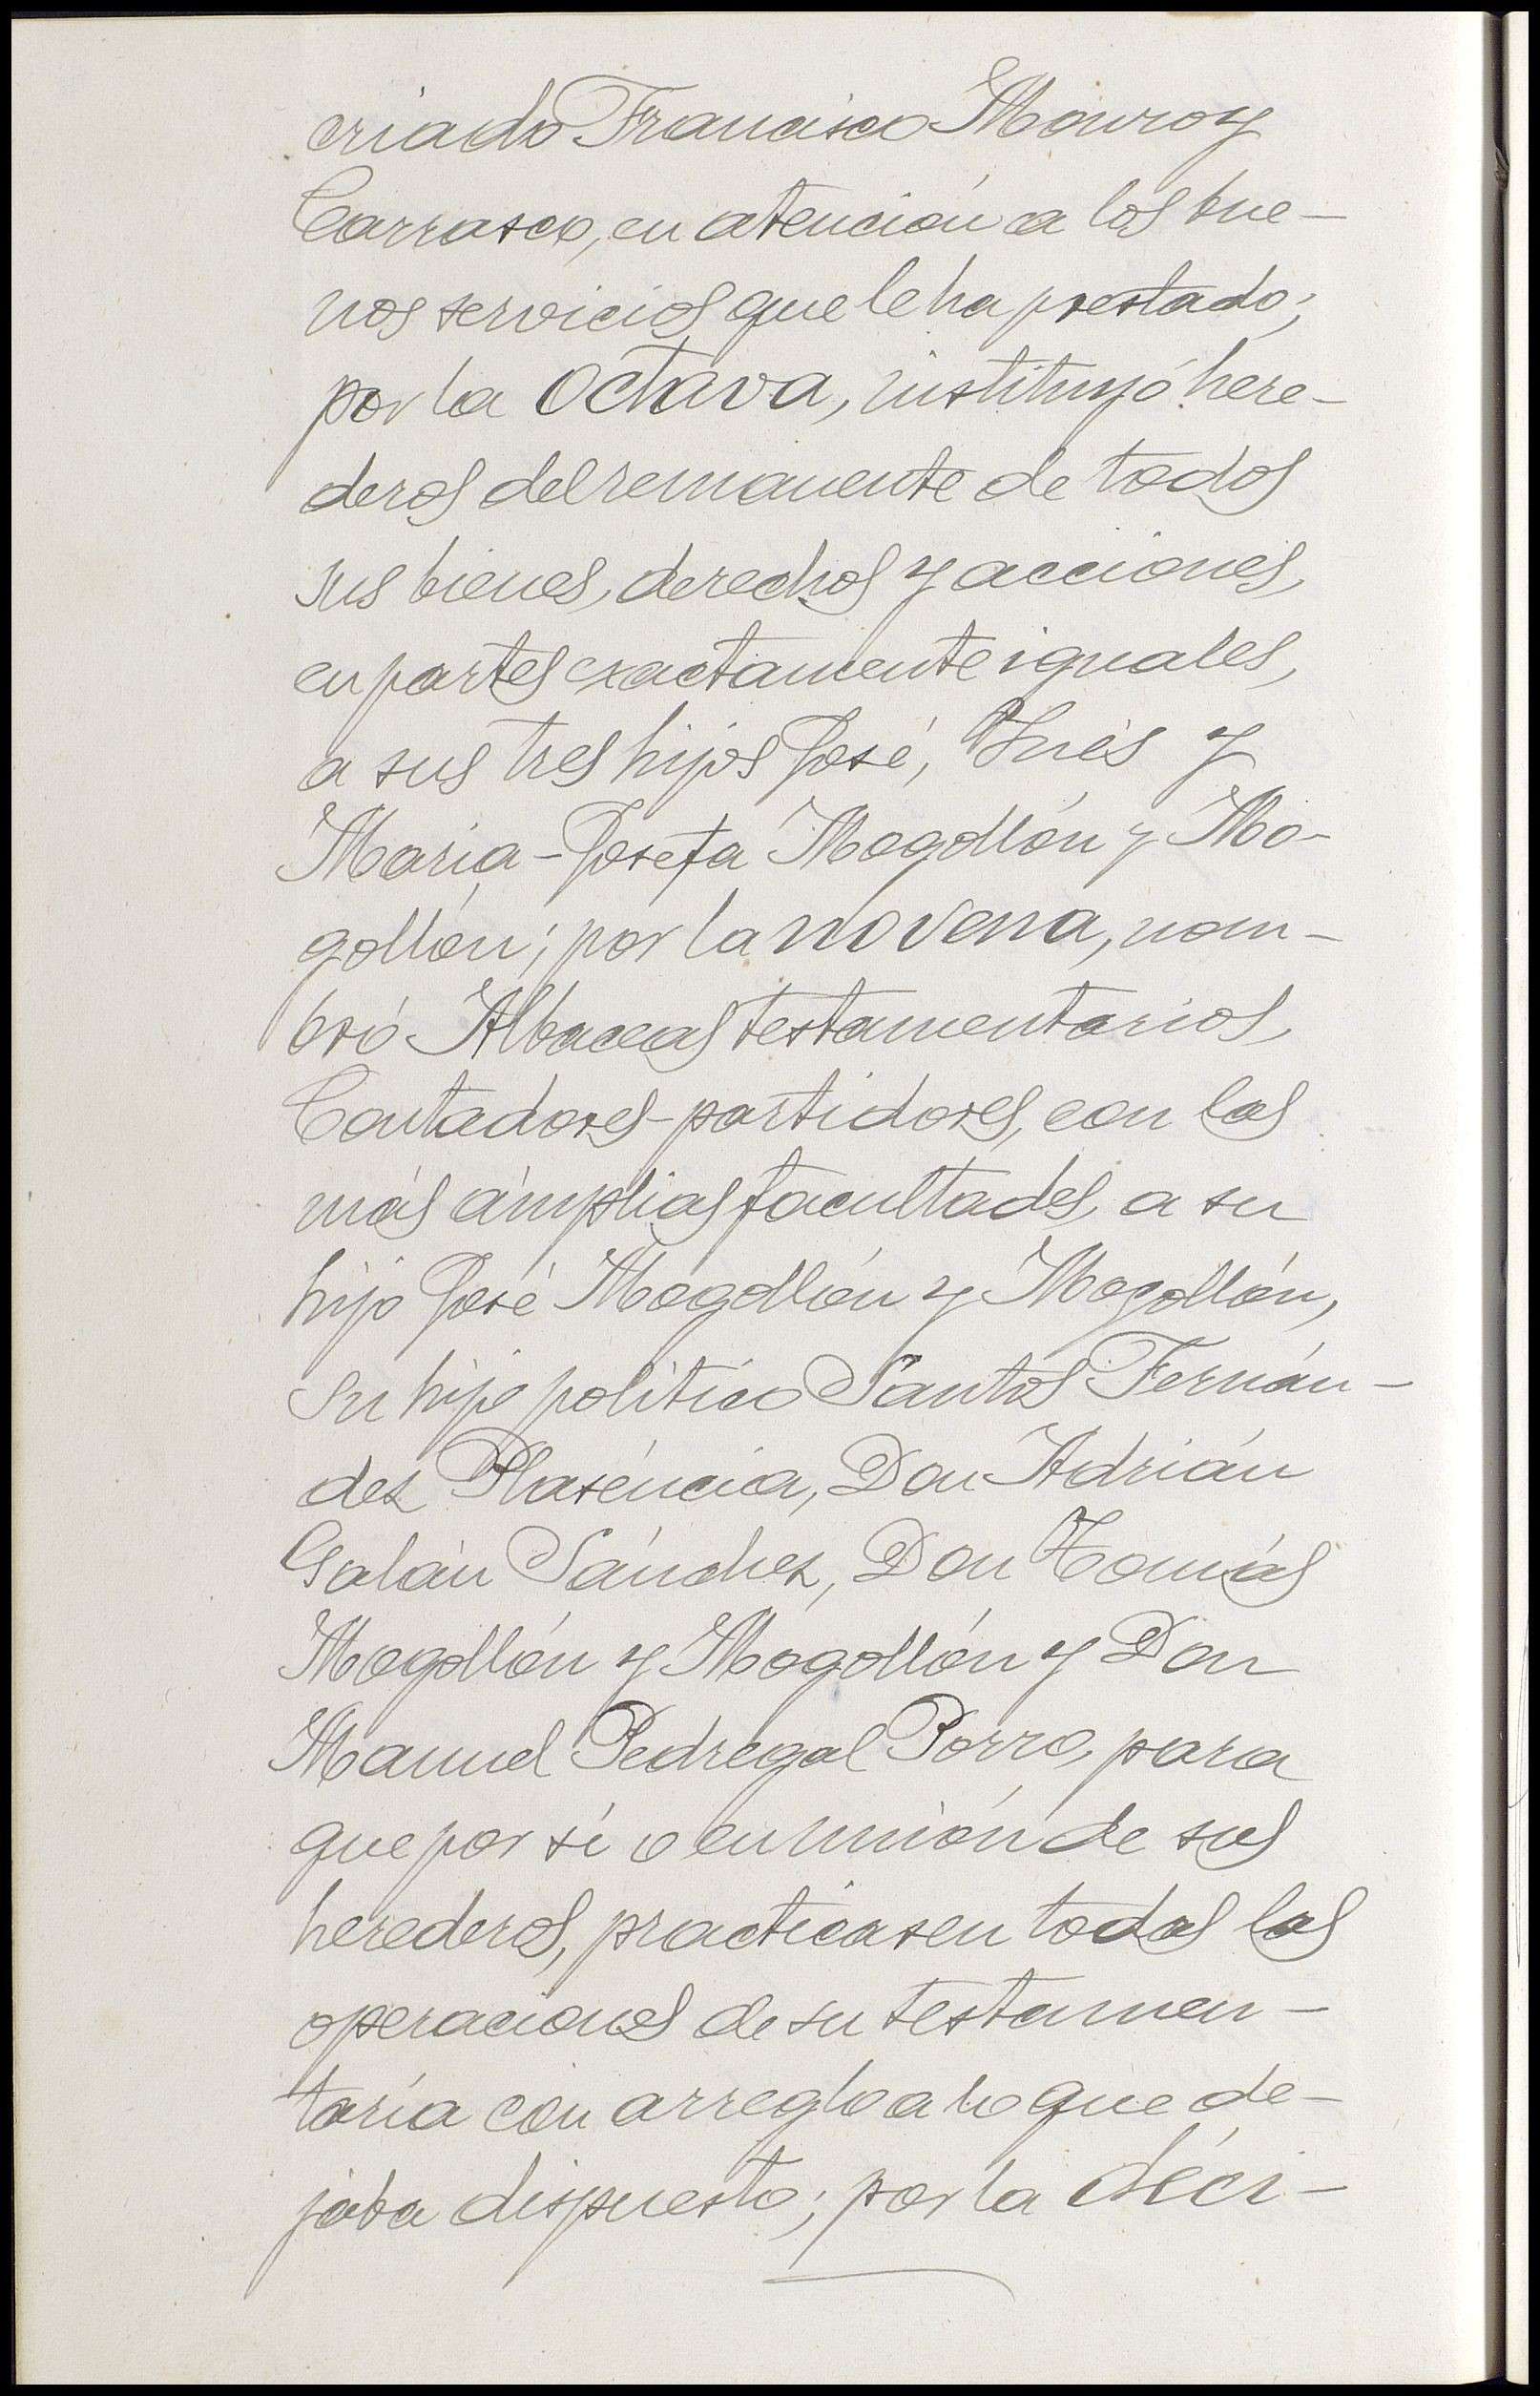 criado Francisco Monroy
Carrasco, en atención a los bue-
nos servicios que le ha prestado;
por la octava, instituyó here-
deros del remanente de todos
sus bienes, derechos y acciones,
en partes exactamente iguales,
a sus tres hijos José, Inés y
María-Josefa Mogollón y Mo-
gollón; por la novena, nom-
bró Albaceas testamentarios,
Contadores-partidores, con las
más ámplias facultades, a su
hijo José Mogollón y Mogollón,
su hijo político Santos Fernán-
dez Plasencia, Don Adrián
Galán Sánchez, Don Tomás
Mogollón y Mogollón y Don
Manuel Pedregal Porro, para
que por sí o en unión de sus
herederos, practicasen todas las
operaciones de su testamen-
taría con arreglo a lo que de-
jaba dispuesto; por la déci-